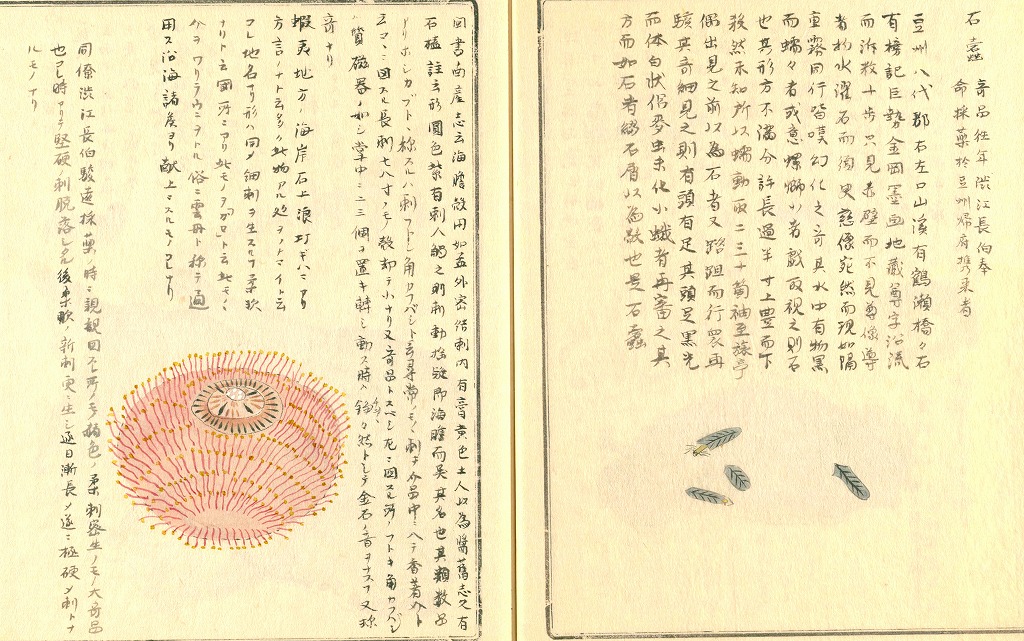 石蠧 奇品往年渋江長伯奉
命採薬於豆州帰府携来者
豆州八代郡右左口山溪有鶴瀬橋々石
有榜記巨勢金岡墨画地蔵尊字沿流
而泝数十歩只見赤壁而不見尊像導
者杓水濯石而後慈像宛然而現如隔
重霧同行皆嘆幻化之奇其水中有物黒
而蠕々者或意螺螄小者戯取視之則石
也其形方不満分許長過半寸上豊而下
殺然不知所以蠕動取二三十箇袖至旅亭
偶出見之前以為石者又踏跙而行衆再
駭其奇細見之則有頭有足其頭足黒光
而体白状似麦虫未化小蛾者再審之其
方而如石者綴石屑以為殻也是石蠧
同書南産志云海膽殻円如盂外密結刺内有膏黄色土人以為醬舊志又有
石榼註云形圓色紫有刺人觸之則刺動揺疑即海膽而異其名也其類数品
アリホシカブト称スルハ刺フトシ角カブバシト云尋常ノモノ刺
ココニ図スル長刺七八寸ノモノ殻却テ小ナリ又奇品トスベシ左ニ図スル所ノフトキ角カブバシ
質磁器ノ如シ掌中ニ二三個ヲ置キ轉シ動ス時ハ錚々然トシテ金石ノ音ヲナス又
奇ナリ
蝦夷地方ノ海岸石上浪打ギハニアリ
方言ノナト云多ク此物アル処ヲノナマイト云
フレ地名ナリ形ハ同ク細刺ヲ生スルフ柔軟
ナリト云国所ニアリ此モノヲガゼト云此モノ
今ヲワリラウニヲトル俗ニ雲丹ト称テ通
用ス沿海諸侯ヨリ献上マスルモノコレナリ
同僚渋江長伯駿遠採薬ノ時ニ親観図スル所ノモノ橘色ノ柔刺密生ノモノ大奇品
也コレ時アリテ堅硬ノ刺脱落シタル後柔軟ノ新刺更ニ生シ逐日漸長メ遂ニ極硬ノ刺トナ
ルモノナリ